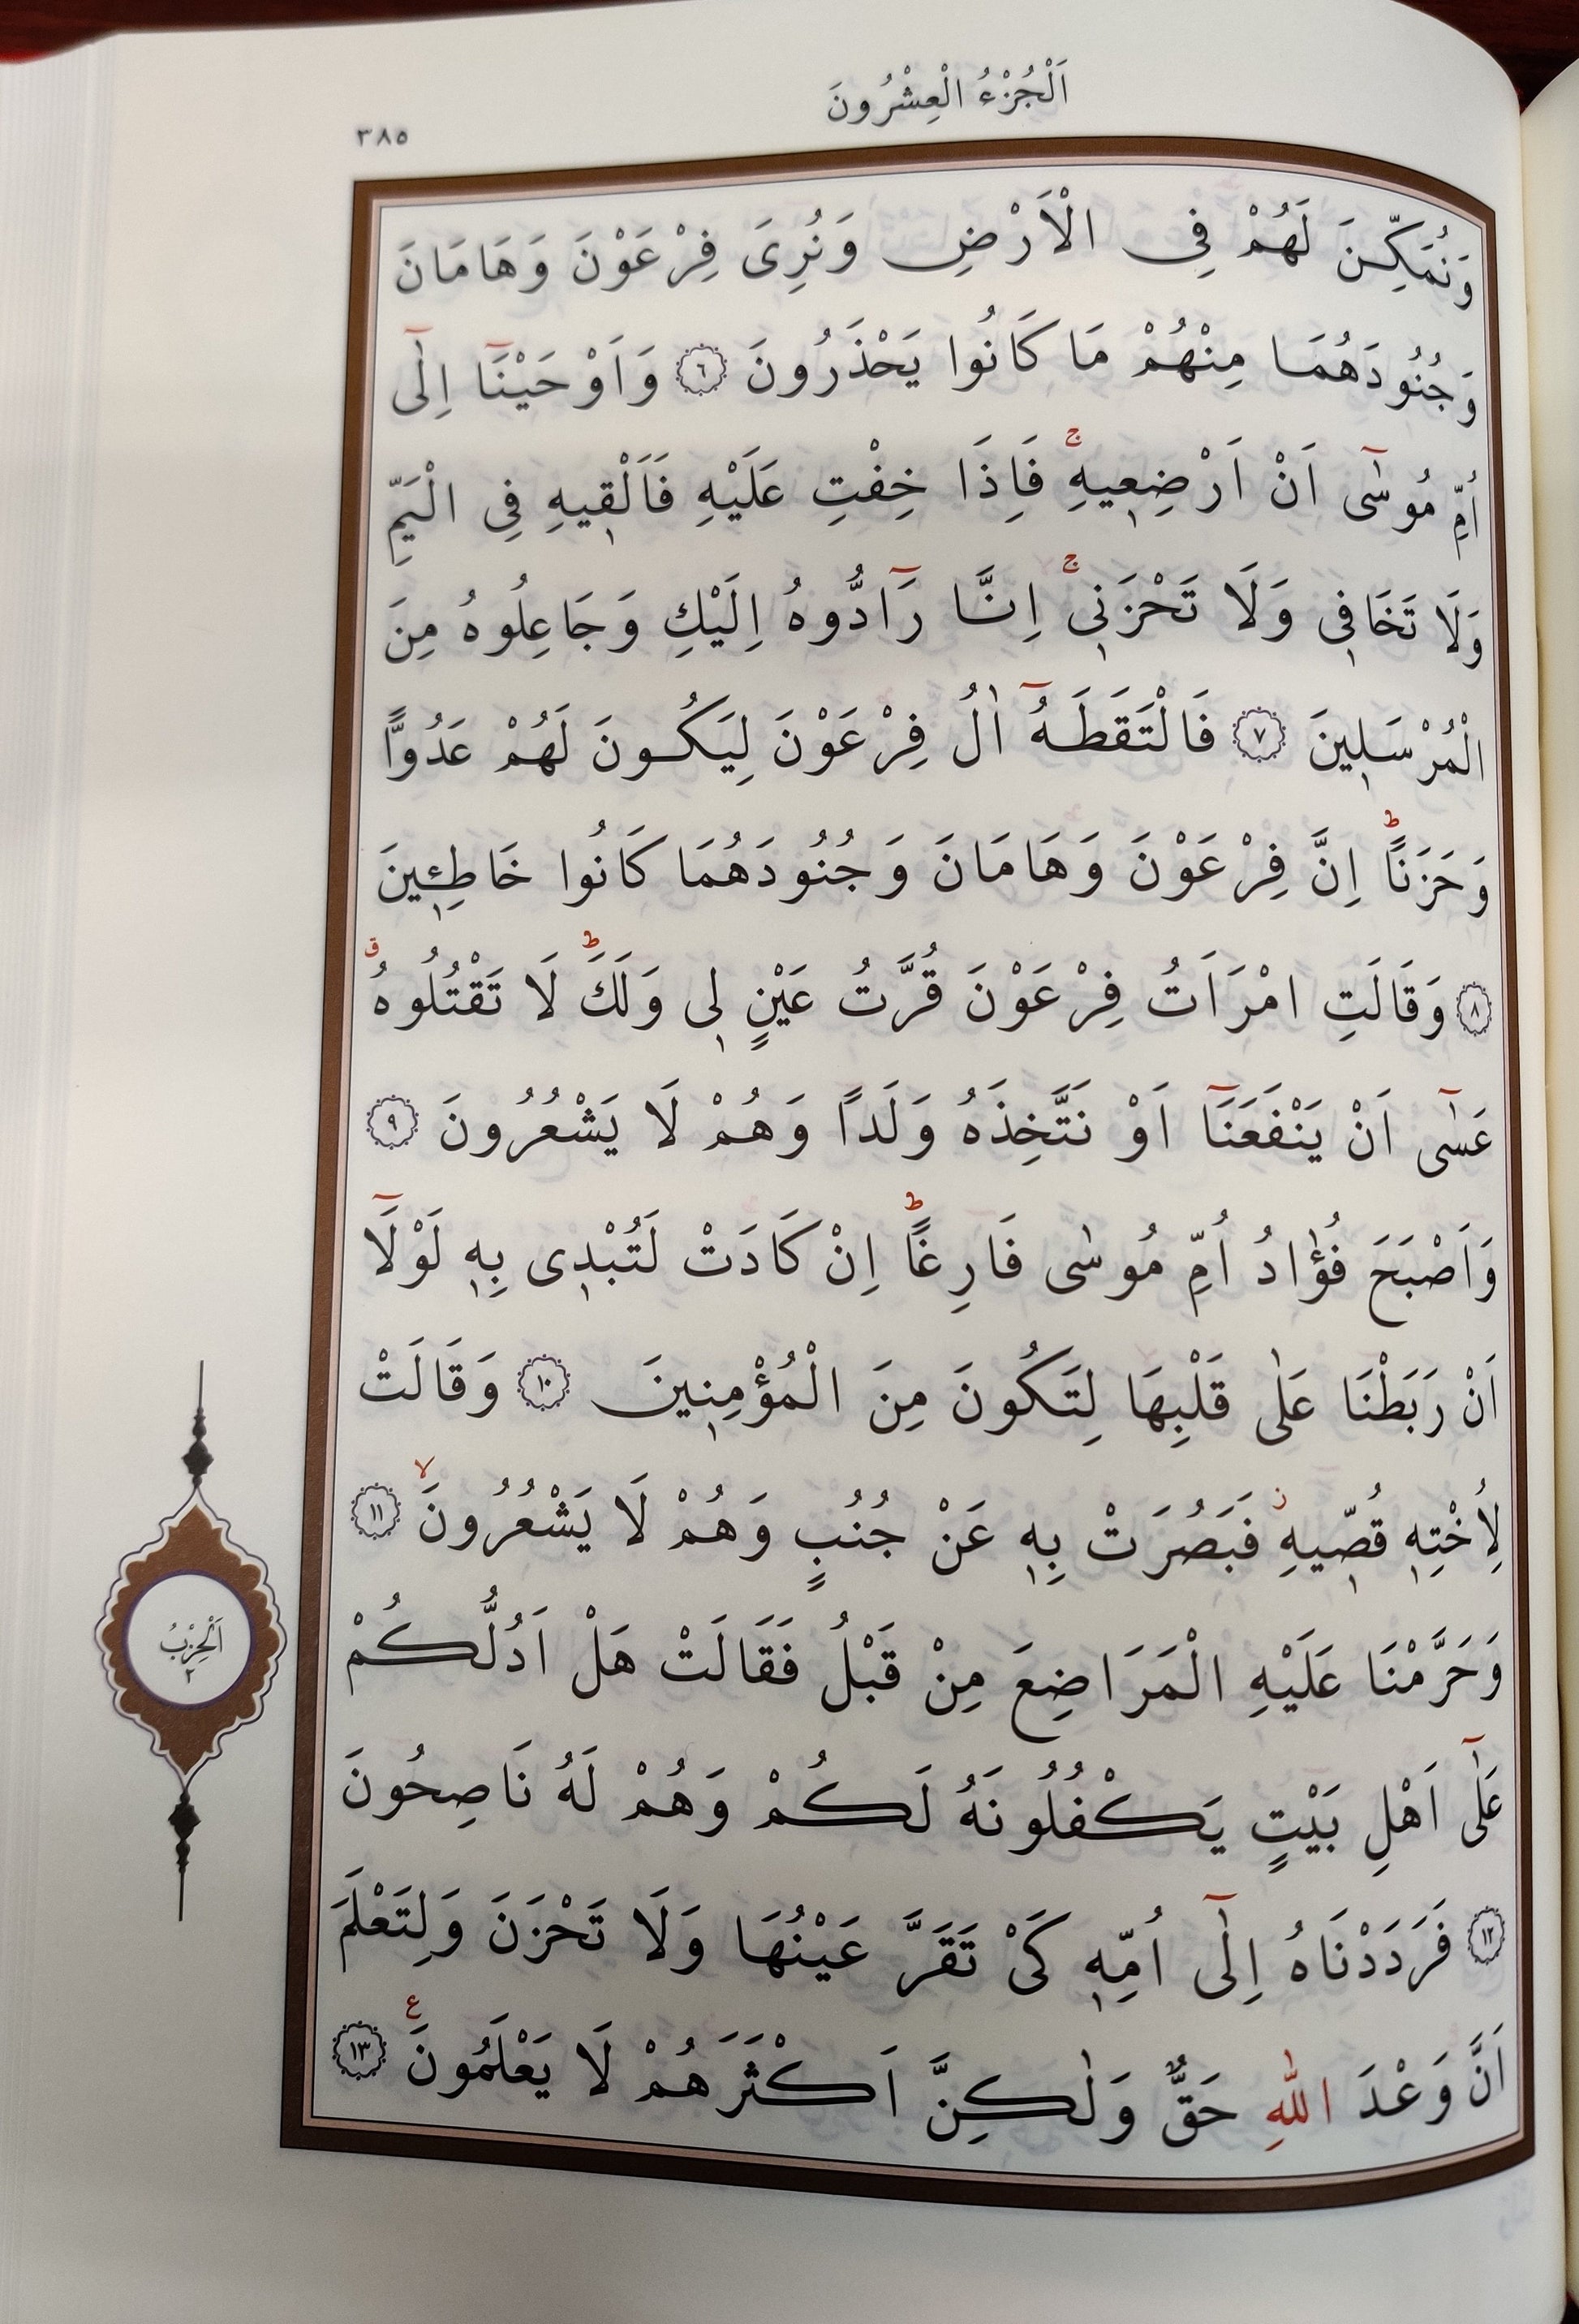 اَلْجُزْءُ الْعِشْرُونَ
٣٨٥
وَنُمَكِّنَ لَهُمْ فِى الْاَرْضِ وَنُرِىَ فِرْعَوْنَ وَهَامَانَ
وَجُنُودَهُمَا مِنْهُمْ مَا كَانُوا يَحْذَرُونَ ﴿٦﴾ وَاَوْحَيْنَٓا اِلٰٓى
اُمِّ مُوسٰٓى اَنْ اَرْضِعٖيهِۚ فَاِذَا خِفْتِ عَلَيْهِ فَاَلْقٖيهِ فِى الْيَمِّ
وَلَا تَخَافٖى وَلَا تَحْزَنٖىۚ اِنَّا رَٓادُّوهُ اِلَيْكِ وَجَاعِلُوهُ مِنَ
الْمُرْسَلٖينَ ﴿٧﴾ فَالْتَقَطَهُٓ اٰلُ فِرْعَوْنَ لِيَكُونَ لَهُمْ عَدُوًّا
وَحَزَنًاؕ اِنَّ فِرْعَوْنَ وَهَامَانَ وَجُنُودَهُمَا كَانُوا خَاطِـٖٔينَ
﴿٨﴾ وَقَالَتِ امْرَاَتُ فِرْعَوْنَ قُرَّتُ عَيْنٍ لٖى وَلَكَؕ لَا تَقْتُلُوهُࣗ
عَسٰٓى اَنْ يَنْفَعَنَٓا اَوْ نَتَّخِذَهُ وَلَدًا وَهُمْ لَا يَشْعُرُونَ ﴿٩﴾
وَاَصْبَحَ فُؤٰادُ اُمِّ مُوسٰى فَارِغًاؕ اِنْ كَادَتْ لَتُبْدٖى بِهٖ لَوْلَٓا
اَنْ رَبَطْنَا عَلٰى قَلْبِهَا لِتَكُونَ مِنَ الْمُؤْمِنٖينَ ﴿١٠﴾ وَقَالَتْ
لِاُخْتِهٖ قُصّٖيهِؗ فَبَصُرَتْ بِهٖ عَنْ جُنُبٍ وَهُمْ لَا يَشْعُرُونَۙ ﴿١١﴾
وَحَرَّمْنَا عَلَيْهِ الْمَرَاضِعَ مِنْ قَبْلُ فَقَالَتْ هَلْ اَدُلُّكُمْ
عَلٰٓى اَهْلِ بَيْتٍ يَكْفُلُونَهُ لَكُمْ وَهُمْ لَهُ نَاصِحُونَ
﴿١٢﴾ فَرَدَدْنَاهُ اِلٰٓى اُمِّهٖ كَىْ تَقَرَّ عَيْنُهَا وَلَا تَحْزَنَ وَلِتَعْلَمَ
اَنَّ وَعْدَ اللّٰهِ حَقٌّ وَلٰكِنَّ اَكْثَرَهُمْ لَا يَعْلَمُونَࣖ ﴿١٣﴾
اَلْحِزْبُ
٢